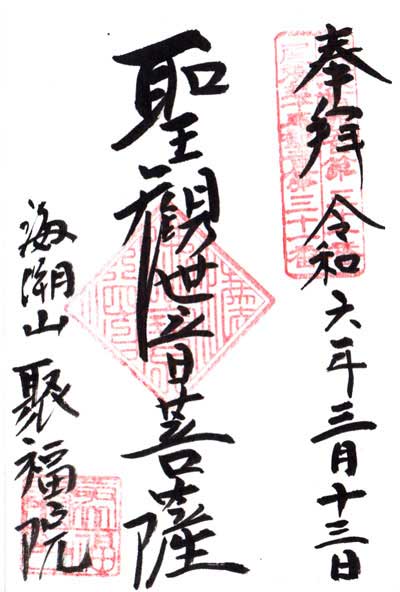 奉拜 令和六年三月十三日
聖觀世音菩薩
海潮山 聚福院